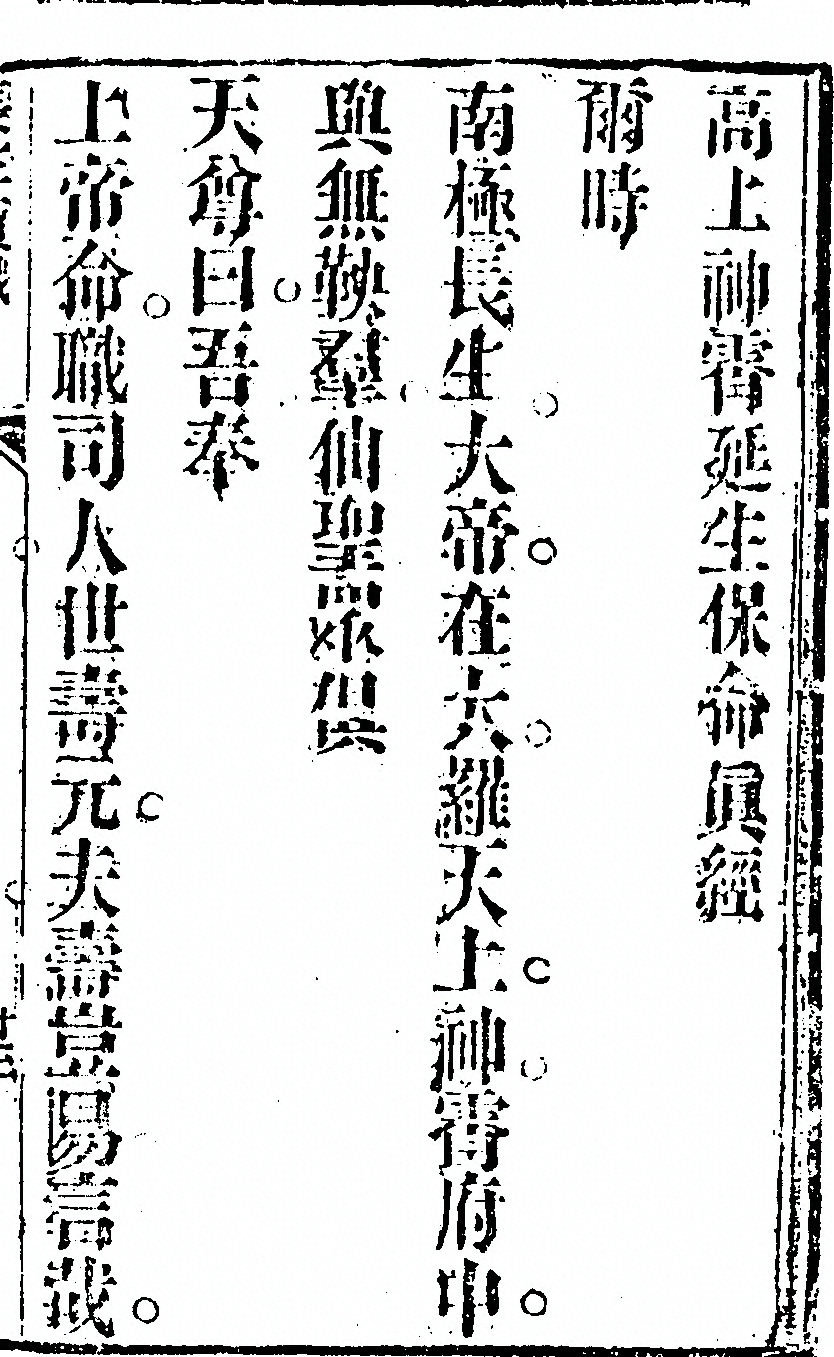 高上神霄延生保命眞經
爾時
南極長生大帝在大羅天上神霄府中
與無鞅羣仙聖眾俱
天尊曰吾奉
上帝命職司人世壽元夫壽豈易言哉